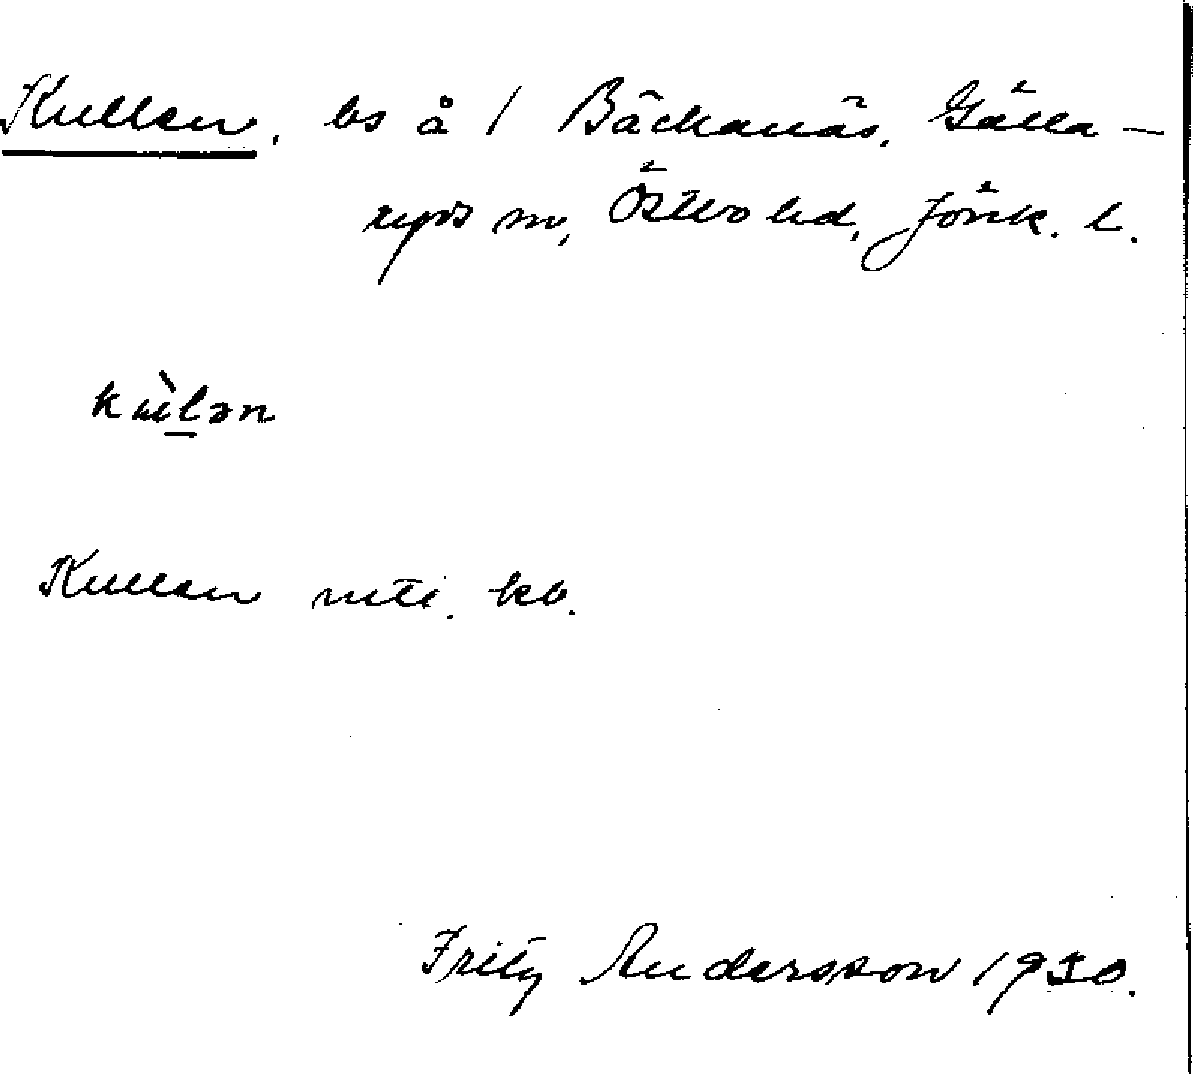 Kullen, bs å 1 Bäckanäs, Gälla-
ryds sn, Östbo hd, Jönk. l.
kùlən
Kullen kb.
Fritz Andersson 1930.